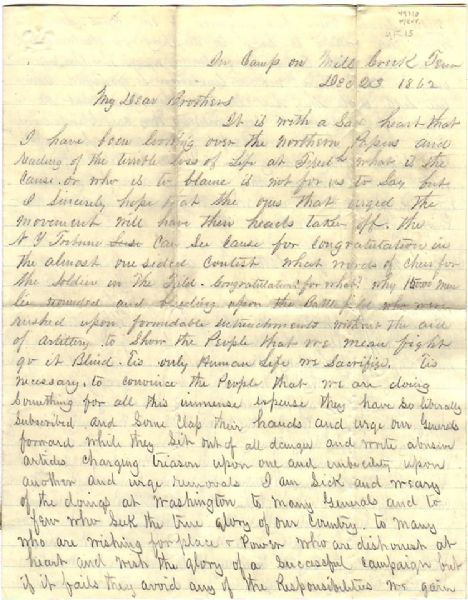 In Camp on Mill Creek Tenn
Dec 23 1862
My Dear Brothers
It is with a Sad heart that
I have been looking over the Northern Papers and
reading of the terrible loss of Life at what is the
cause or who is to blame is not for us to Say but
I Sincerely hope that the ones that urged the
movement will have their heads taken off. the
N Y Tribune Can See cause for congratulation in
the almost one sided contest what words of cheer for
the Soldier in The Field. Congratulations for what? why 15000 men
lie wounded and bleeding upon the Battle field who were
rushed upon formidable entrenchments without the aid
of artillery to Show the People that we mean fight
go it Blind. Tis only Human Life we Sacrifice. Tis
necessary to convince the People that we are doing
Something for all this immense expense they have So liberally
Subscribed and Some Clap their hands and urge our Generals
forward while they Sit out of all danger and write abusive
articles charging treason upon one and imbecility upon
another and urge removals I am Sick and weary
of the doings at Washington to many Generals and to
few who Seek the true glory of our Country. to many
who are wishing for place & Power who are dishonest at
heart and wish the glory of a Successful Campaign but
if it fails they avoid any of the Responsibilities we gain